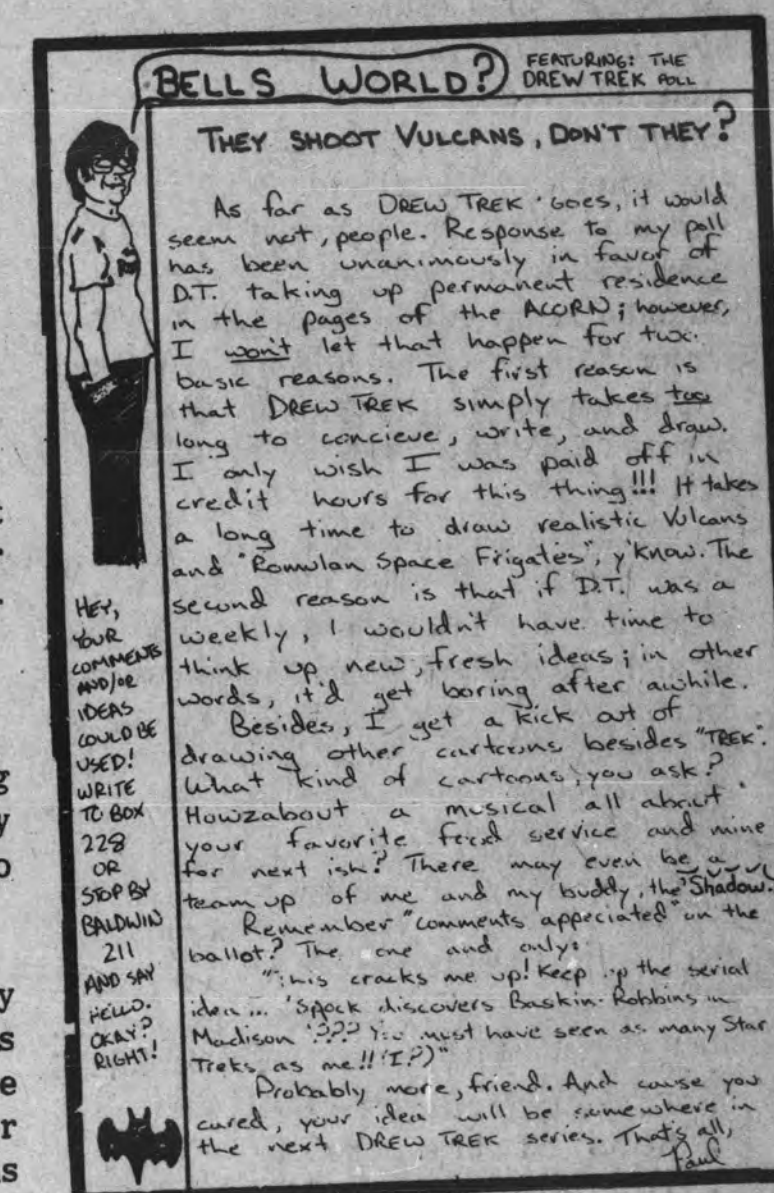 BELLS WORLD?
FEATURING: THE
DREW TREK POLL
THEY SHOOT VULCANS, DON'T THEY?
As far as DREW TREK GOES, it would
seem not, people. Response to my poll
has been unanimously in favor of
D.T. taking up permanent residence
in the pages of the ACORN; however,
I won't let that happen for two
basic reasons. The first reason is
that DREW TREK simply takes too
long to concieve, write, and draw.
I only wish I was paid off in
credit hours for this thing!!! It takes
a long time to draw realistic Vulcans
and "Romulan Space Frigates", y'know. The
second reason is that if D.T. was a
weekly, I wouldn't have time to
think up new, fresh ideas; in other
words, it'd get boring after awhile.
Besides, I get a kick out of
drawing other cartoons besides "TREK".
What kind of cartoons, you ask?
Howzabout a musical all about
your favorite food service and mine
for next ish? There may even be a
team up of me and my buddy, the "Shadow.
Remember "comments appeciated" on the
ballot? The one and only:
"This cracks me up! Keep up the serial
idea... 'Spock discovers Baskin-Robbins in
Madison'??? You must have seen as many Star
Treks as me!! (I?)"
Probably more, friend. And cause you
cared, your idea will be somewhere in
the next DREW TREK series. That's all,
Paul
HEY,
YOUR
COMMENTS
AND/OR
IDEAS
COULD BE
USED!
WRITE
TO BOX
228
OR
STOP BY
BALDWIN
211
AND SAY
HELLO.
OKAY?
RIGHT!
g
y
o
y
s
e
r
s